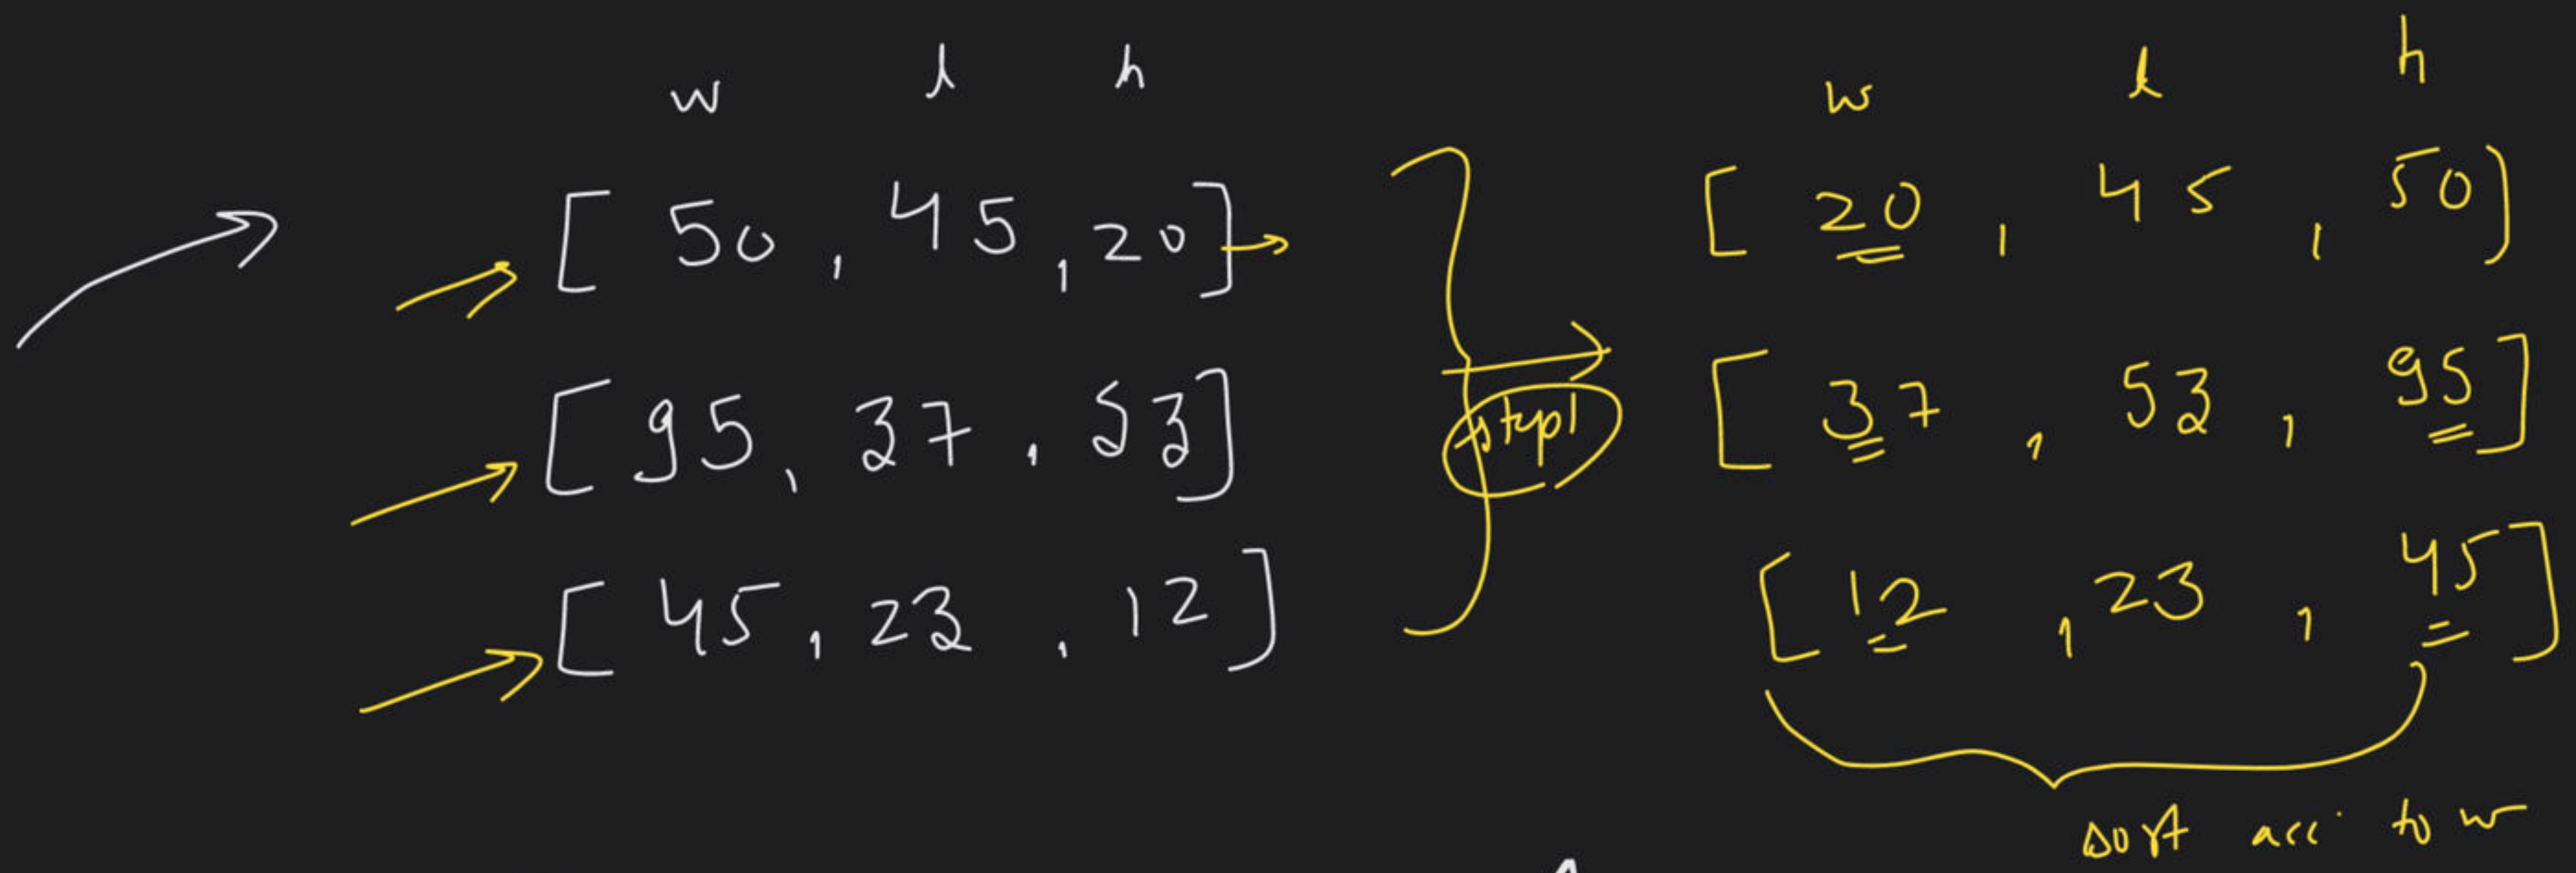 w l h
[ 50 , 45 , 20 ]
[ 95 , 37 , 53 ]
[ 45 , 23 , 12 ]
step1
w l h
[ 20 , 45 , 50 ]
[ 37 , 53 , 95 ]
[ 12 , 23 , 45 ]
sort acc. to w